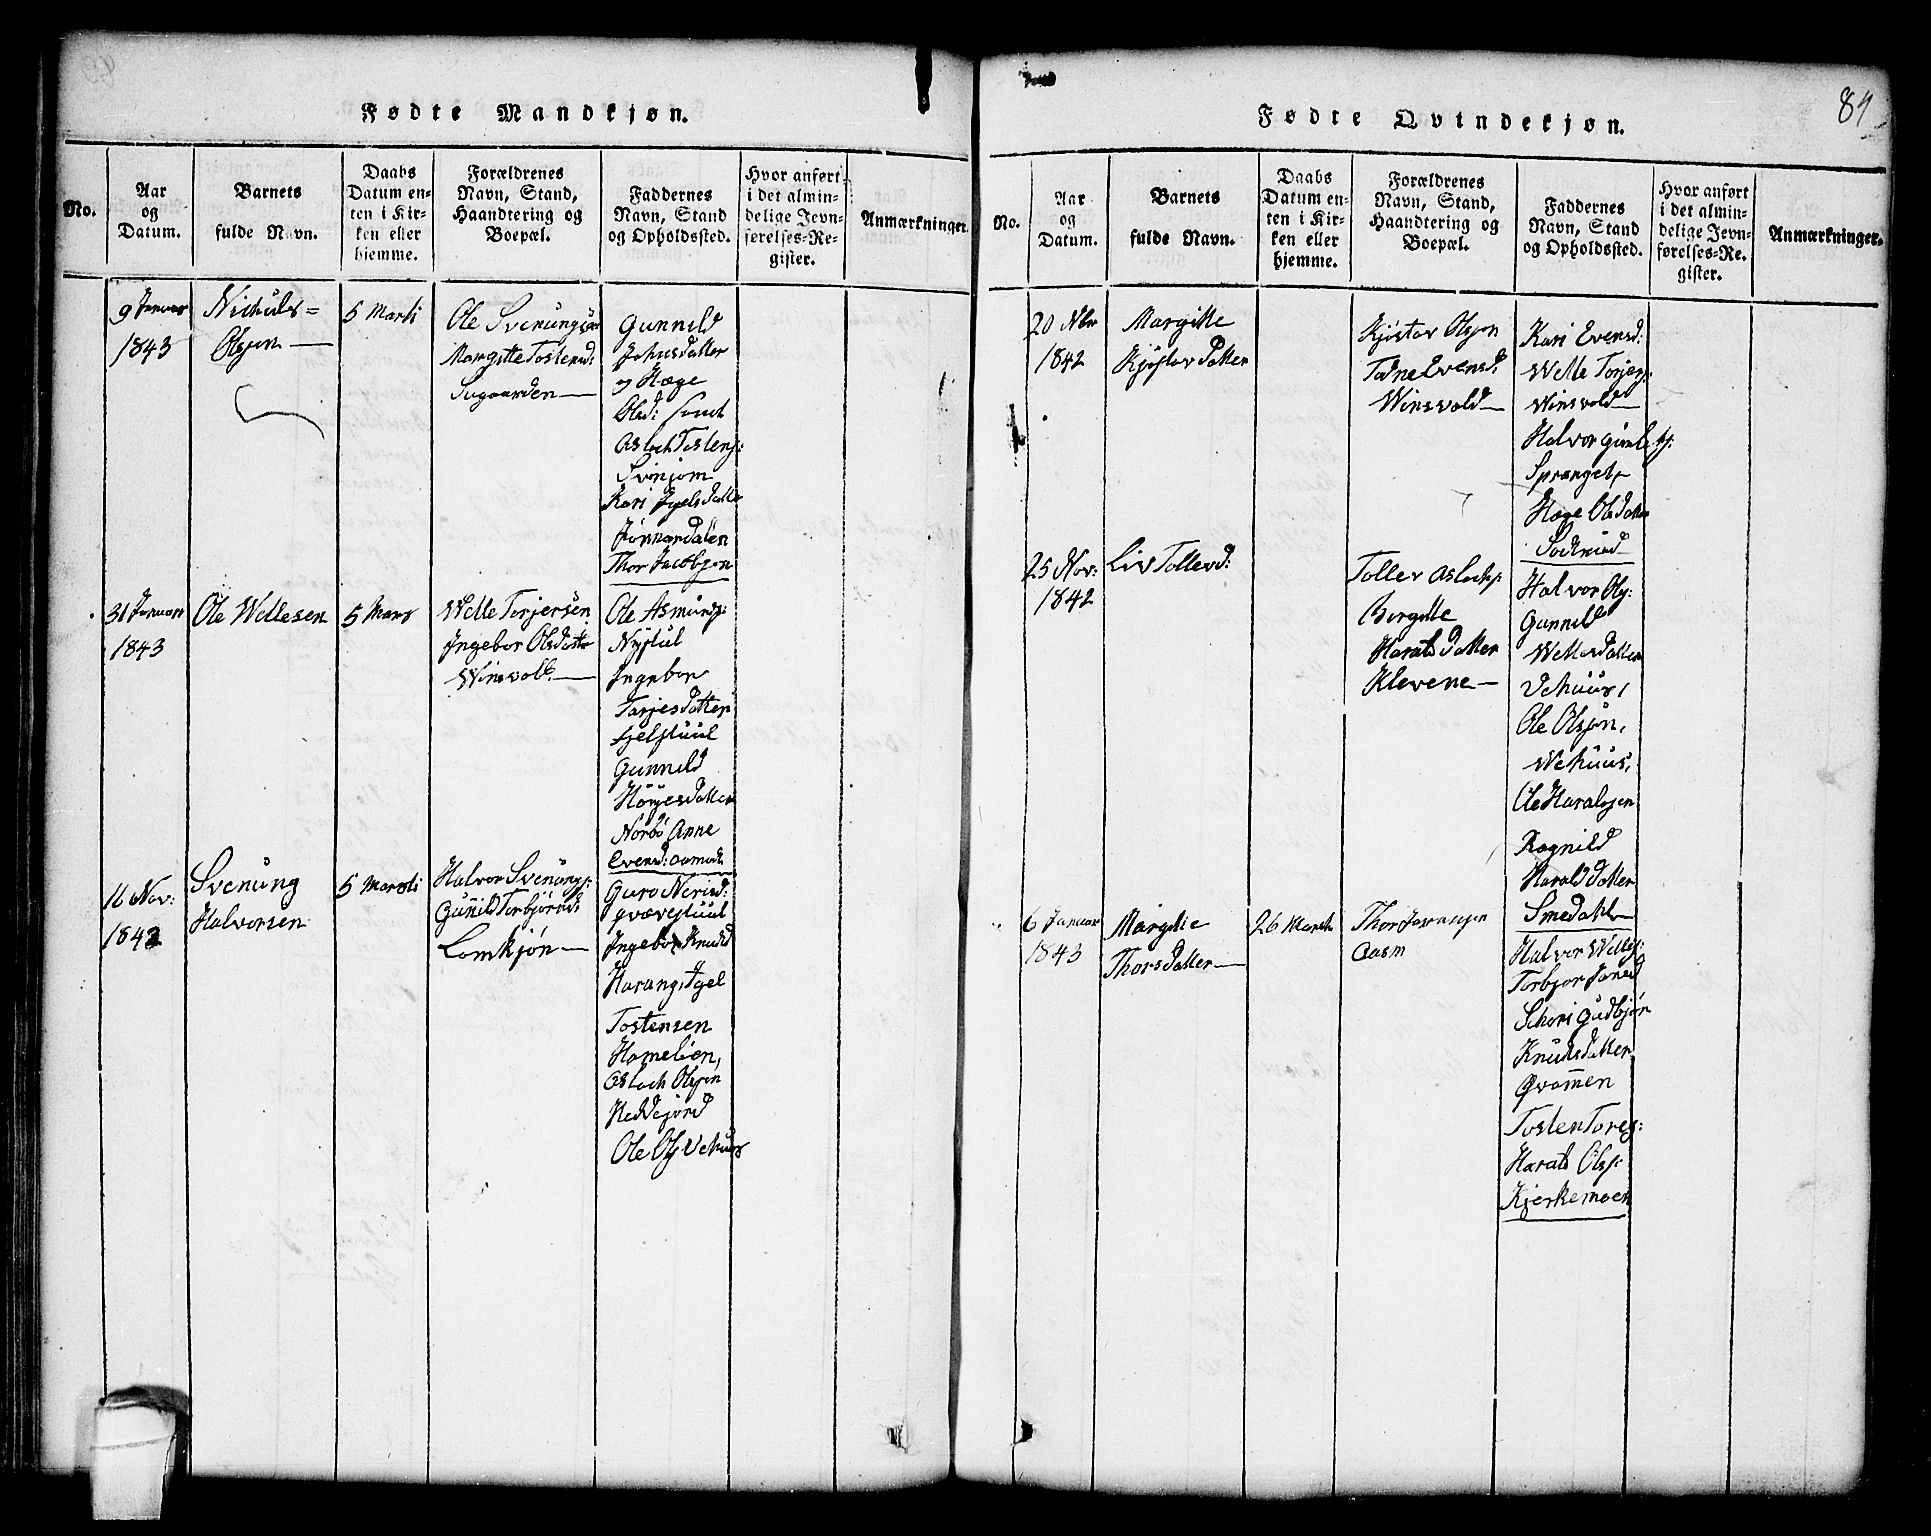 Fødte Mandkjøn.
No.
Aar
og
Datum.
Barnets
fulde Navn.
Daabs
Datum en-
ten i Kir-
ken eller
hjemme.
Forældrenes
Navn, Stand,
Haandtering og
Boepæl.
Faddernes
Navn, Stand
og Opholdssted.
Hvor anført
i det almin-
delige Jevn-
førelses-Re-
gister.
Anmærkninger.
9 Januar
1843
Olsøn
5 Marti
Ole Svenungsøn
Margitte Tostensd:
Gunnild
Johnsdatter
og Hæge
Olsd:
Asloch Tostens:
Svinjom
Kari
Thor Jacobsøn
31 Januar
1843
Ole Wetlesen
5 Mars
Wetle Torjersen
Ingebor Olsdatter
Winsvold
Ole Asmunds:
Nystul
Ingebor
Tarjesdatter
Gunnild
Norbø Anne
Evensd:
11 Nov:
1842
Svenung
Halvorsen
5 Marti
Halvor Svenungs:
Gunild Torbjørnsd:
Lomkjøn
Guro
Ingebor Knusd
Tostensen
Asloch Olsøn
Heddejord
Ole Ols Vehuus
Fødte Qvindekjøn.
84
No.
Aar
og
Datum.
Barnets
fulde Navn.
Daabs
Datum en-
ten i Kir-
ken eller
hjemme.
Forældrenes
Navn, Stand,
Haandtering og
Boepæl.
Faddernes
Navn, Stand
og Opholdssted.
Hvor anført
i det almin-
delige Jevn-
førelses-Re-
gister.
Anmærkninger.
20 Nbr
1842
Margitte
Kjøstovdatter
Kjøstov Olsøn
Winsvold
Kari Evensd:
Wetle Torjers:
Winsvold
Halvor
Hæge Olsdatter
25 Nov:
1842
Liv Tollevsd:
Tollev Aslachs:
Bergitte
Haraldsdatter
Klevene
Halvor Ols:
Gunnild
Wetlesdatter
Vehuus,
Ole Olsøn,
Wehuus,
Ole Haralsøn
Ragnild
Haralddatter
Smedahl
6 Januar
1843
Margitte
Thorsdatter
26 Marti
Thor
Aasm
Halvor Wetles:
Torbjør
Gudbjør
Knudsdatter
Qvammen
Tosten Tores:
Harald Ols:
Kjerkemoen